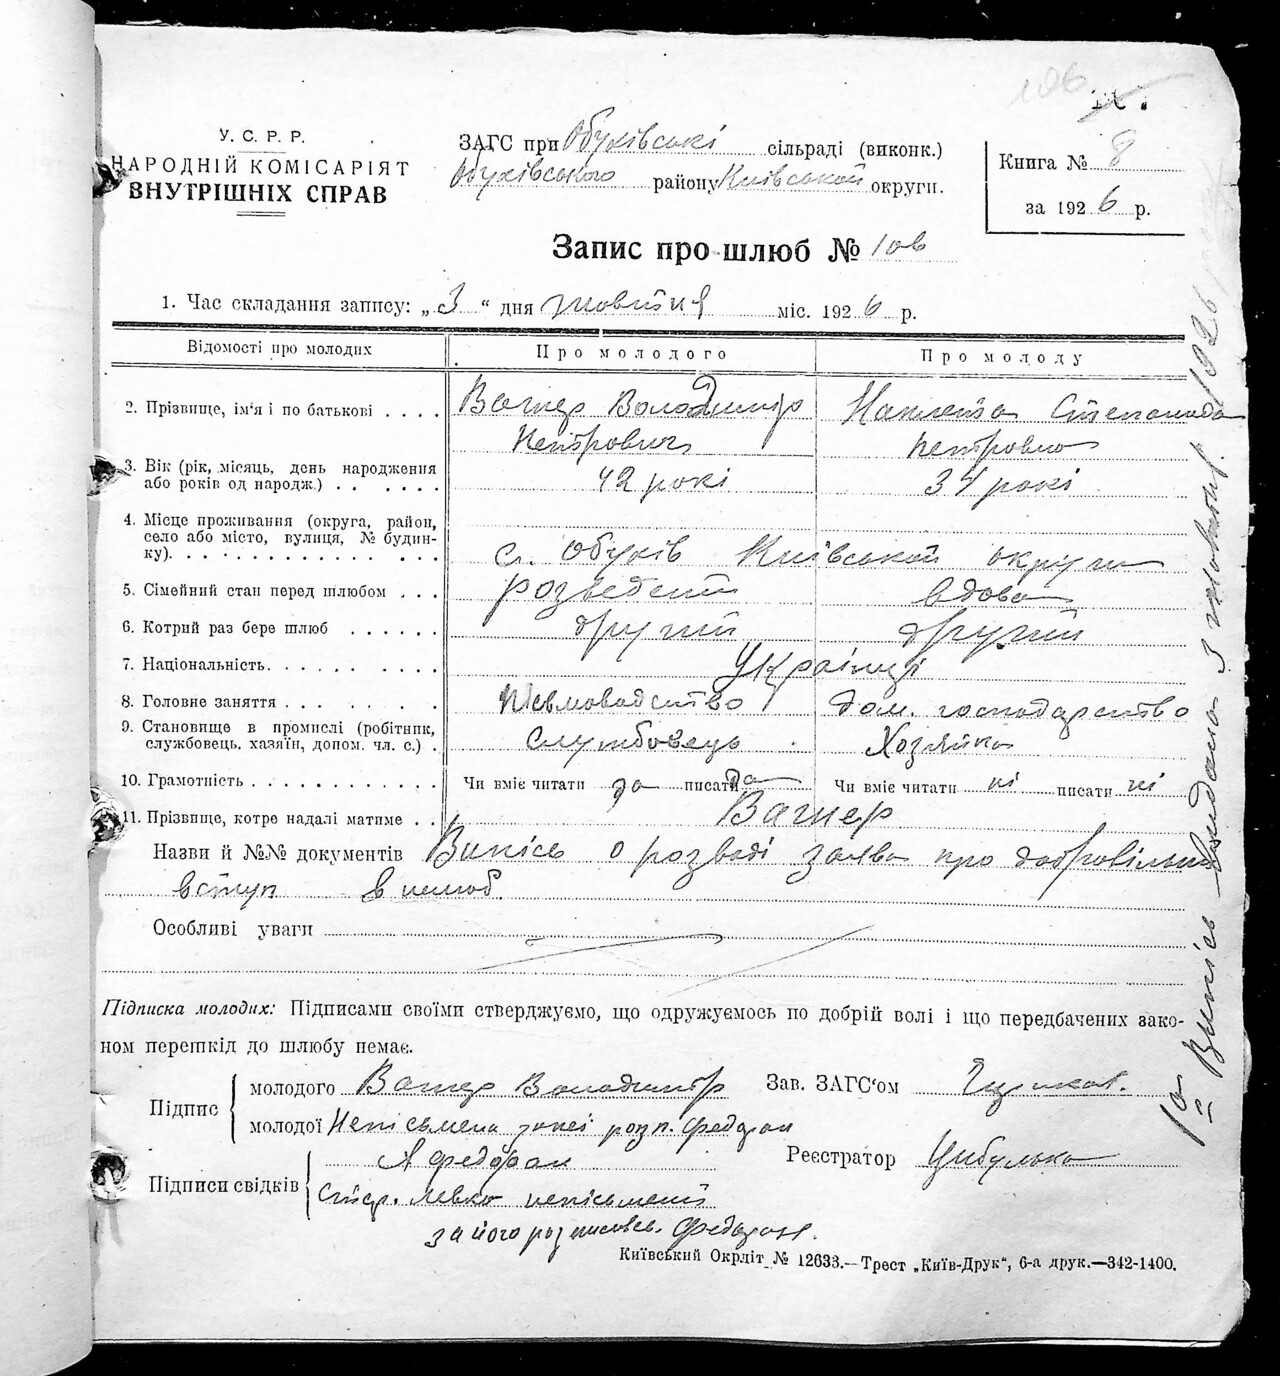 106
У. С. Р. Р.
НАРОДНІЙ КОМІСАРІЯТ
ВНУТРІШНІХ СПРАВ
ЗАГС при Обухівські сільраді (виконк.)
Обухівського району Київської округи.
Книга № 8
за 1926 р.
Запис про шлюб № 106
1. Час складання запису: „3“ дня жовтня міс. 1926 р.
Відомості про молодих
Про молодого
Про молоду
2. Прізвище, ім'я і по батькові . . . .
Вагнер Володимір
Петрович
Степанида
Петровна
3. Вік (рік, місяць, день народження
або років од народж.) . . . . . .
42 рокі
34 рокі
4. Місце проживання (округа, район,
село або місто, вулиця, № будин-
ку). . . . . . . . . . . . . . .
с. Обухів Київської округи
5. Сімейний стан перед шлюбом . . .
розведений
вдова
6. Котрий раз бере шлюб . . . . . .
другий
другий
7. Національність. . . . . . . . . .
Українці
8. Головне заняття . . . . . . .
Письмоводство
дом. господарство
9. Становище в промислі (робітник,
службовець, хазяїн, допом. чл. с.) .
службовець
Хозяйка
10. Грамотність . . . . . . . . . . . .
Чи вміє читати да писати да
Чи вміє читати ні писати ні
11. Прізвище, котре надалі матиме . .
Вагнер
Назви й №№ документів Випісь о розводі заява про добровільний
вступ в шлюб.
Особливі уваги
Підписка молодих: Підписами своїми стверджуємо, що одружуємось по добрій волі і що передбачених зако-
ном перешкід до шлюбу немає.
Підпис
молодого Вагнер Володимір
молодої Непісьмена розп. Федоран
Зав. ЗАГС'ом
Реєстратор Цибулько
Підписи свідків
Я Федоран
Левко непісьмений
за його росписовсь. Федоран.
Київський Окрліт № 12633.—Трест „Київ-Друк“, 6-а друк.—342-1400.
Випісь видана 3 жовтня 1926 року